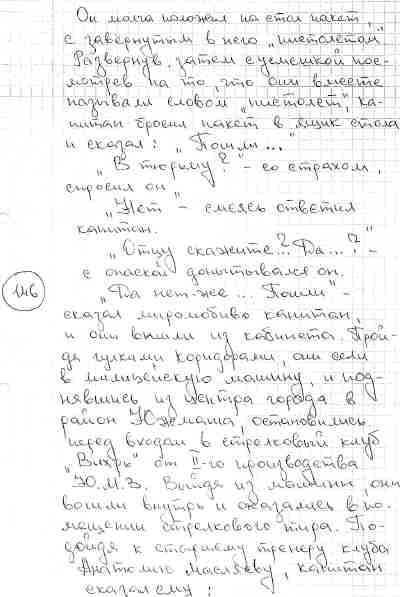 Он молча положил на стол пакет,
с завернутым в него „пистолетом“.
Развернув, затем с усмешкой пос-
мотрев на то, что они вместе
называли словом „пистолет“, ка-
питан бросил пакет в ящик стола
и сказал: „Пошли...“
„В тюрьму?“ - со страхом,
спросил он
„Нет“ - смеясь ответил
капитан.
„Отцу скажите...? Да...!?“ -
с опаской допытывался он.
146
„Да нет-же... Пошли“ -
сказал миролюбиво капитан,
и они вышли из кабинета. Прой-
дя гулкими коридорами, они сели
в милицейскую машину, и под-
нявшись из центра города в
район Южмаша, остановились
перед входом в стрелковый клуб
„Вихрь“ от II-го производства
Ю.М.З. Выйдя из машины, они
вошли внутрь и оказались в по-
мещении стрелкового тира. По-
дойдя к старшему тренеру клуба
Анатолию Маслаеву, капитан
сказал ему: